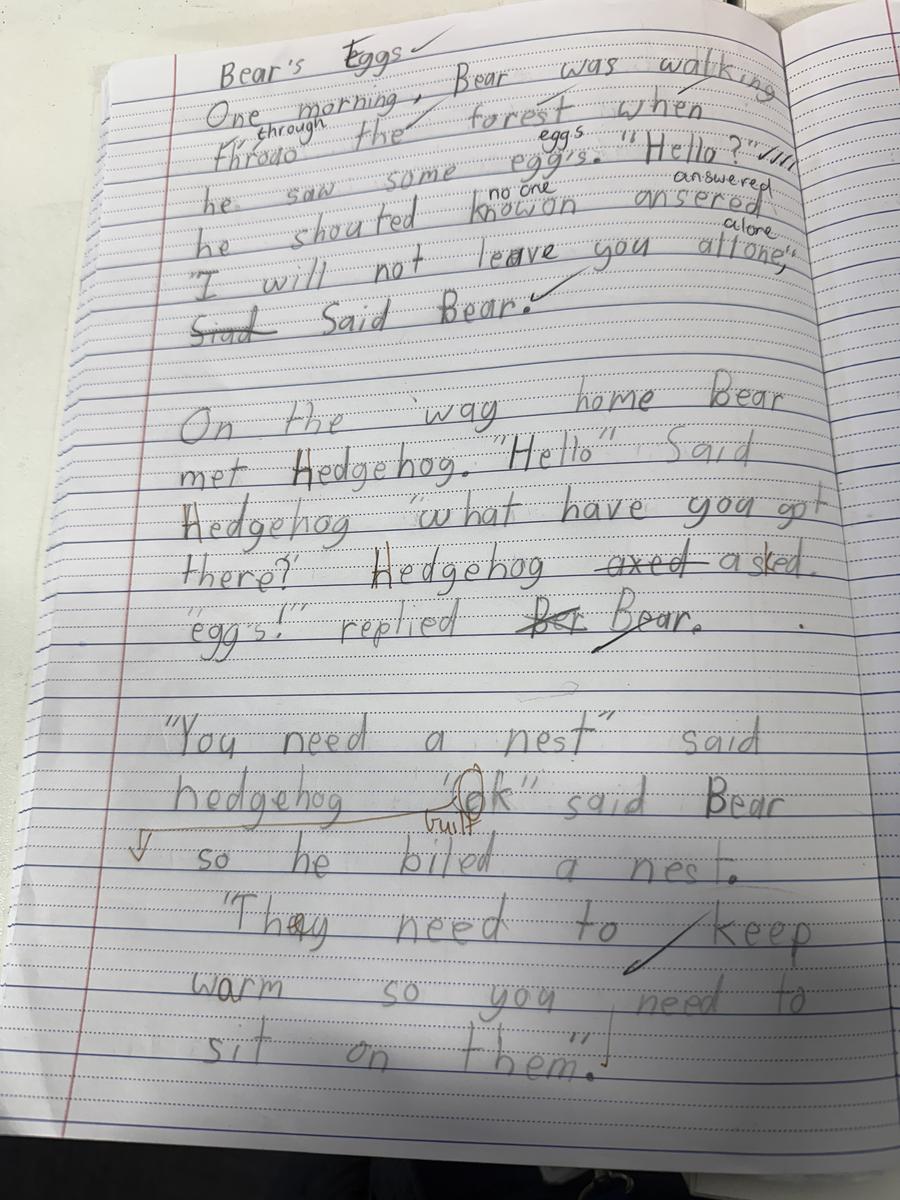 Bear's Eggs
One morning, Bear was walking
through
throgo the forest when
eggs
he saw some egg's. "Hello?"
no one answered
he shouted knowon ansered
alone
"I will not leave you allone,"
Siad Said Bear.
On the way home Bear
met Hedgehog. "Hello" Said
Hedgehog "what have you got
there?" Hedgehog axed asked.
"egg's!" replied Ber Bear.
"You need a nest" said
hedgehog "ok" said Bear
built
so he biled a nest.
"They need to keep
warm so you need to
sit on them".